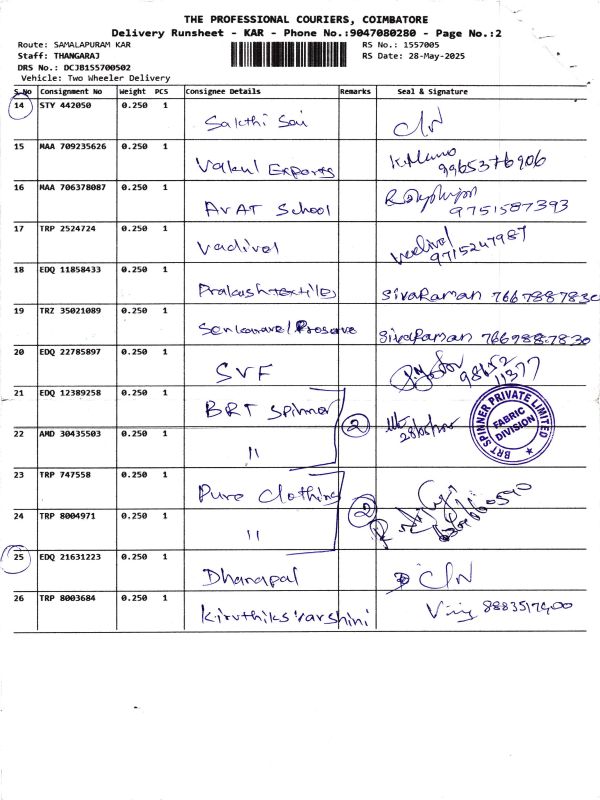 THE PROFESSIONAL COURIERS, COIMBATORE
Delivery Runsheet - KAR - Phone No.:9047080280 - Page No.:2
Route: SAMALAPURAM KAR RS No.: 1557005
Staff: THANGARAJ RS Date: 28-May-2025
DRS No.: DCJB155700502
Vehicle: Two Wheeler Delivery
S.No Consignment No Weight PCS Consignee Details Remarks Seal & Signature
14 STY 442050 0.250 1 Sakthi Sai C/N
15 MAA 709235626 0.250 1 Vakul Exports
9965376906
16 MAA 706378087 0.250 1 AVAT School
9751587393
17 TRP 2524724 0.250 1 Vadivel Vadivel
9715247987
18 EDQ 11858433 0.250 1 Prakash textiles SivaRaman
19 TRZ 35021089 0.250 1 SivaRaman
20 EDQ 22785897 0.250 1 SVF 98652
11377
21 EDQ 12389258 0.250 1 BRT Spinner 2
BRT SPINNER PRIVATE LIMITED
FABRIC DIVISION
22 AMD 30435503 0.250 1 "
23 TRP 747558 0.250 1 Pure Clothing 2
24 TRP 8004971 0.250 1 "
25 EDQ 21631223 0.250 1 Dhanapal C/N
26 TRP 8003684 0.250 1 Kiruthiksvarshini